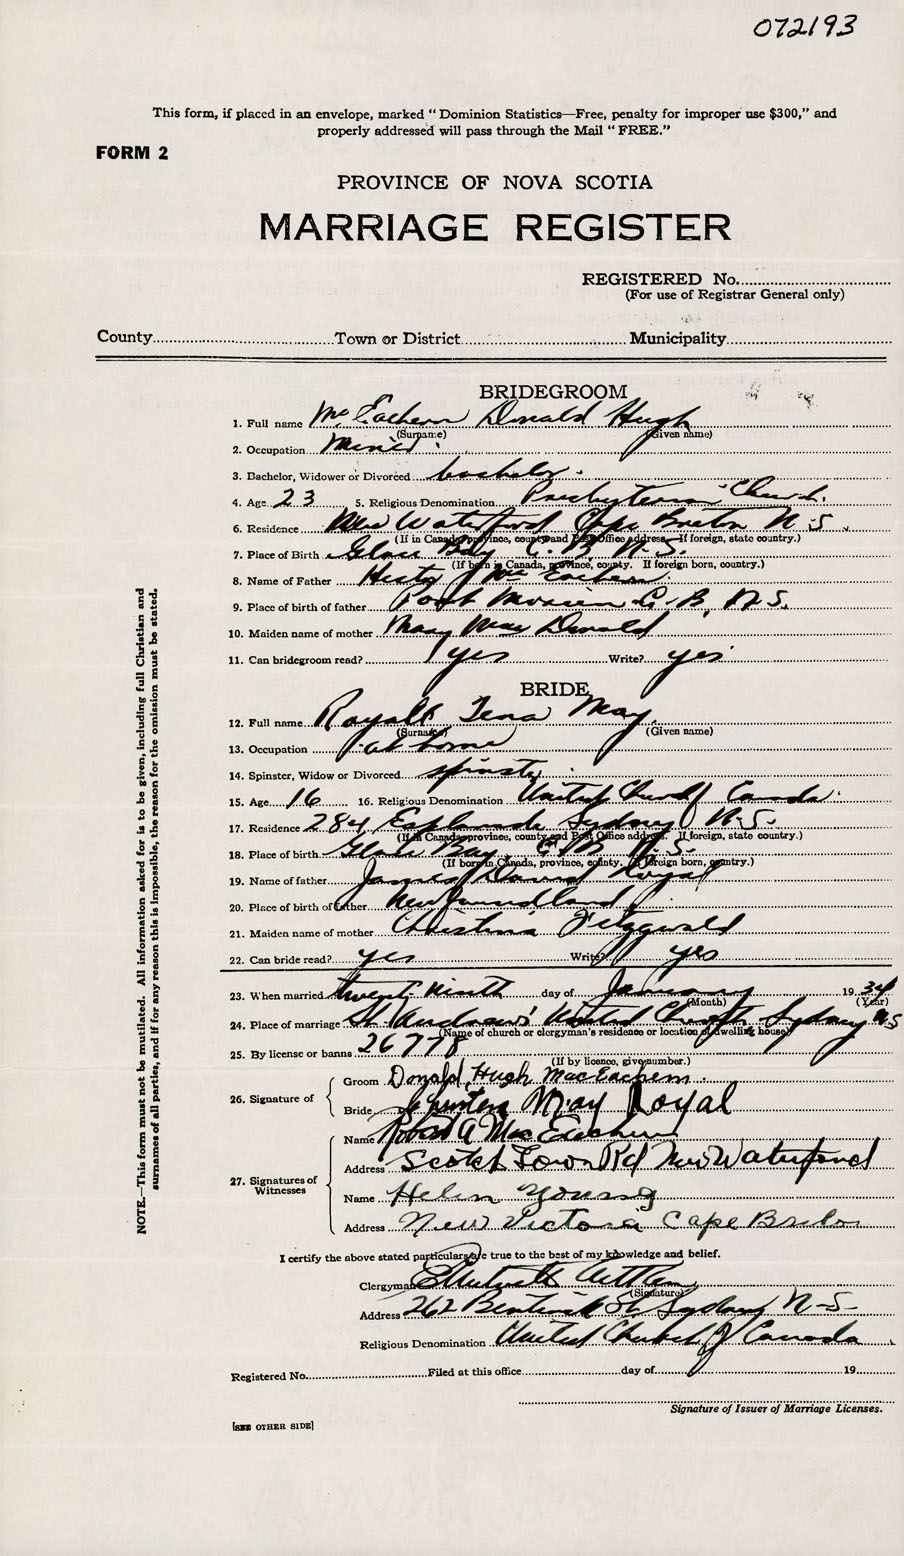 072193
This form, if placed in an envelope, marked "Dominion Statistics—Free, penalty for improper use $300," and
properly addressed will pass through the Mail "FREE."
FORM 2
PROVINCE OF NOVA SCOTIA
MARRIAGE REGISTER
REGISTERED No.
(For use of Registrar General only)
County Town or District Municipality
BRIDEGROOM
1. Full name McEachern Donald Hugh
(Surname) (Given name)
2. Occupation Miner
3. Bachelor, Widower or Divorced bachelor.
4. Age 23 5. Religious Denomination Presbyterian Church.
6. Residence New Waterford Cape Breton N.S.
(If in Canada, province, county and Post Office address. If foreign, state country.)
7. Place of Birth Glace Bay C.B. N.S.
(If born in Canada, province, county. If foreign born, country.)
8. Name of Father J McEachern
9. Place of birth of father Port Morien C.B. N.S.
10. Maiden name of mother Mary MacDonald
11. Can bridegroom read? yes Write? yes
BRIDE
12. Full name Royal Tena May.
(Surname) (Given name)
13. Occupation at home
14. Spinster, Widow or Divorced spinster
15. Age 16 16. Religious Denomination United Church Canada.
17. Residence 284 Esplanade Sydney N.S.
(If in Canada, province, county and Post Office address. If foreign, state country.)
18. Place of birth Glace Bay C.B. N.S.
(If born in Canada, province, county. If foreign born, country.)
19. Name of father James David Royal
20. Place of birth of father Newfoundland
21. Maiden name of mother Christina Fitzgerald
22. Can bride read? yes Write? yes
23. When married twenty ninth day of January 1934
(Month) (Year)
24. Place of marriage St. Andrews' United Church Sydney N.S
(Name of church or clergyman's residence or location of dwelling house)
25. By license or banns 26778
(If by licence, give number.)
26. Signature of
Groom Donald Hugh MacEachern.
Bride May Royal
27. Signatures of Witnesses
Name Robert A MacEachern
Address Scotch Town Rd New Waterford
Name Helen Young
Address New Victoria Cape Breton
I certify the above stated particulars are true to the best of my knowledge and belief.
Clergyman
(Signature)
Address 262 Bentinck St. Sydney N.S.
Religious Denomination United Church of Canada
Registered No. Filed at this office day of 19
Signature of Issuer of Marriage Licenses.
[SEE OTHER SIDE]
NOTE.—This form must not be mutilated. All information asked for is to be given, including full Christian and
surnames of all parties, and if for any reason this is impossible, the reason for the omission must be stated.